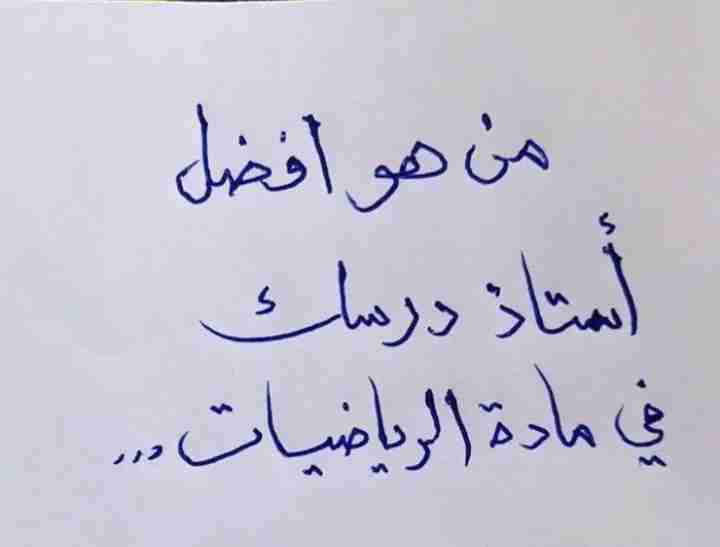 من هو افضل
أستاذ درسك
في مادة الرياضيات ...